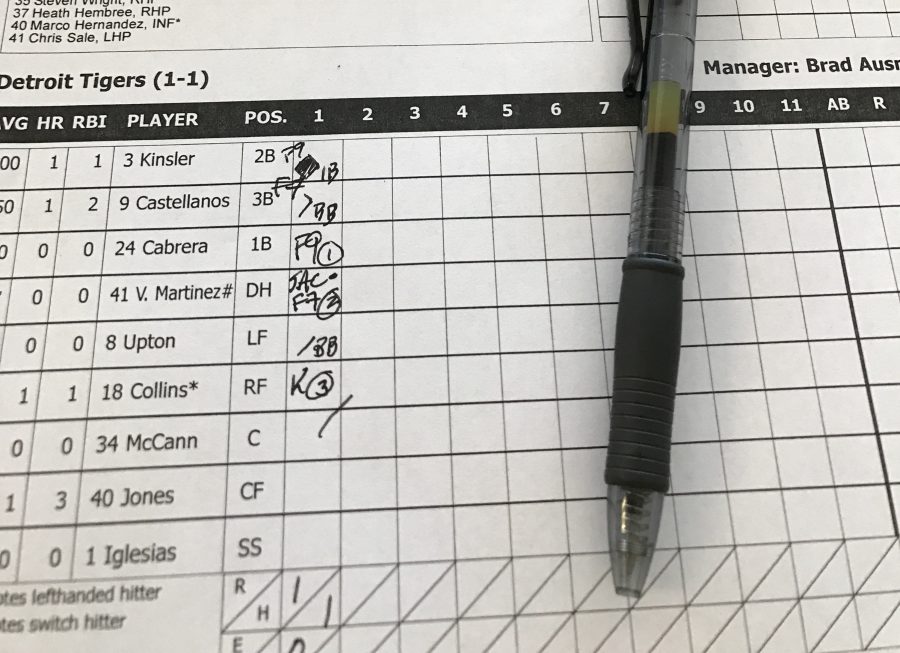 37 Heath Hembree, RHP
40 Marco Hernandez, INF*
41 Chris Sale, LHP
Detroit Tigers (1-1) Manager: Brad Ausm
AVG HR RBI PLAYER POS. 1 2 3 4 5 6 7 9 10 11 AB R
00 1 1 3 Kinsler 2B F9 1B
50 1 2 9 Castellanos 3B F7 BB
0 0 0 24 Cabrera 1B F9 1
0 0 41 V. Martinez# DH SAC-
F7 2
0 0 8 Upton LF BB
1 1 18 Collins* RF K 3
0 0 34 McCann C
1 3 40 Jones CF
0 0 1 Iglesias SS
otes lefthanded hitter R 1
otes switch hitter H 1
E 0